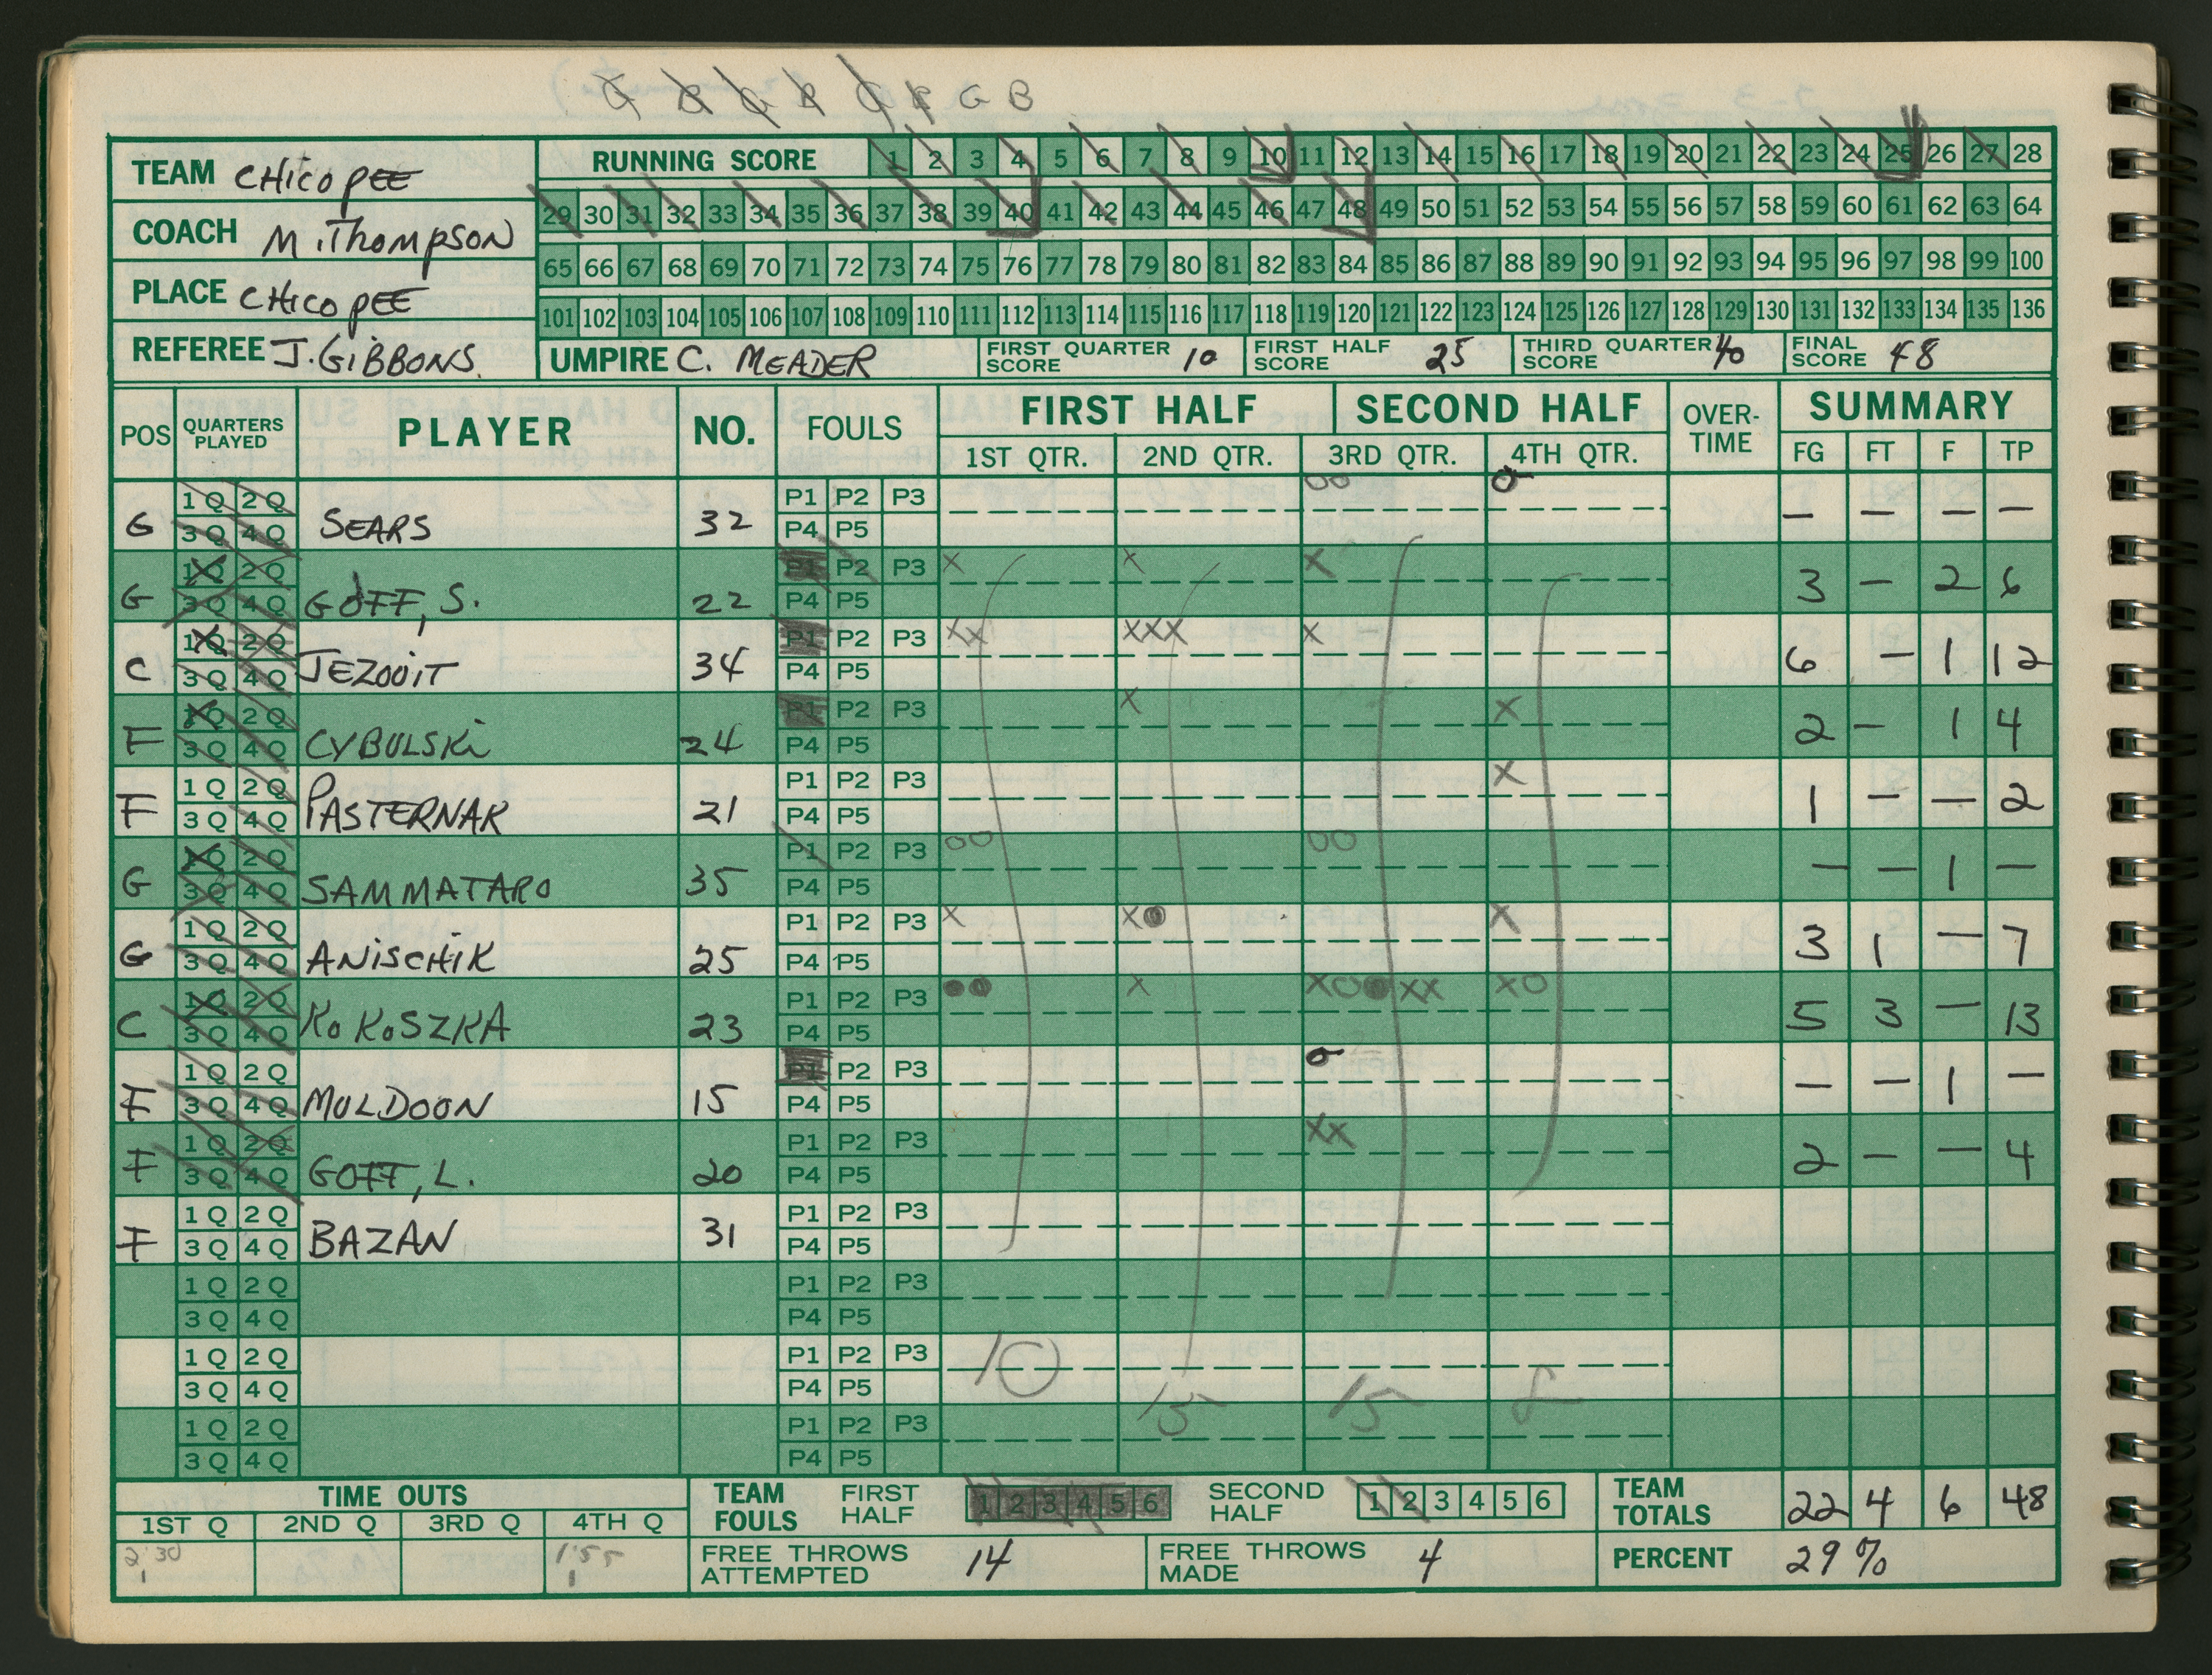 G B G B G B G B
TEAM CHicopEE
COACH M. THOMPSON
PLACE CHicopEE
REFEREE J. GiBBONS.
RUNNING SCORE 1 2 3 4 5 6 7 8 9 10 11 12 13 14 15 16 17 18 19 20 21 22 23 24 25 26 27 28
29 30 31 32 33 34 35 36 37 38 39 40 41 42 43 44 45 46 47 48 49 50 51 52 53 54 55 56 57 58 59 60 61 62 63 64
65 66 67 68 69 70 71 72 73 74 75 76 77 78 79 80 81 82 83 84 85 86 87 88 89 90 91 92 93 94 95 96 97 98 99 100
101 102 103 104 105 106 107 108 109 110 111 112 113 114 115 116 117 118 119 120 121 122 123 124 125 126 127 128 129 130 131 132 133 134 135 136
UMPIRE C. MEADER FIRST QUARTER SCORE 10 FIRST HALF SCORE 25 THIRD QUARTER SCORE 40 FINAL SCORE 48
POS QUARTERS PLAYED PLAYER NO. FOULS FIRST HALF SECOND HALF OVER-TIME SUMMARY
1ST QTR. 2ND QTR. 3RD QTR. 4TH QTR. FG FT F TP
1 Q 2 Q P1 P2 P3 OO O
G 3 Q 4 Q SEARS 32 P4 P5 — — — —
1 Q 2 Q P1 P2 P3 X X X
G 3 Q 4 Q GOFF, S. 22 P4 P5 3 — 2 6
1 Q 2 Q P1 P2 P3 XX XXX X
C 3 Q 4 Q JEZOOIT 34 P4 P5 6 — 1 12
1 Q 2 Q P1 P2 P3 X X
F 3 Q 4 Q CYBULSKi 24 P4 P5 2 — 1 4
1 Q 2 Q P1 P2 P3 X
F 3 Q 4 Q PASTERNAK 21 P4 P5 1 — — 2
1 Q 2 Q P1 P2 P3 OO OO
G 3 Q 4 Q SAMMATARO 35 P4 P5 — — 1 —
1 Q 2 Q P1 P2 P3 X X● X
G 3 Q 4 Q ANiSCHiK 25 P4 P5 3 1 — 7
1 Q 2 Q P1 P2 P3 ●● X XO●XX XO
C 3 Q 4 Q KoKoSZKA 23 P4 P5 5 3 — 13
1 Q 2 Q P1 P2 P3 O
F 3 Q 4 Q MULDOON 15 P4 P5 — — 1 —
1 Q 2 Q P1 P2 P3 XX
F 3 Q 4 Q GOFF, L. 20 P4 P5 2 — — 4
1 Q 2 Q P1 P2 P3
F 3 Q 4 Q BAZAN 31 P4 P5
1 Q 2 Q P1 P2 P3
3 Q 4 Q P4 P5
1 Q 2 Q P1 P2 P3
3 Q 4 Q P4 P5 10 15 15 8
1 Q 2 Q P1 P2 P3
3 Q 4 Q P4 P5
TIME OUTS TEAM FOULS FIRST HALF 1 2 3 4 5 6 SECOND HALF 1 2 3 4 5 6 TEAM TOTALS 22 4 6 48
1ST Q 2ND Q 3RD Q 4TH Q
2:30 1 1:55 1 FREE THROWS ATTEMPTED 14 FREE THROWS MADE 4 PERCENT 29%